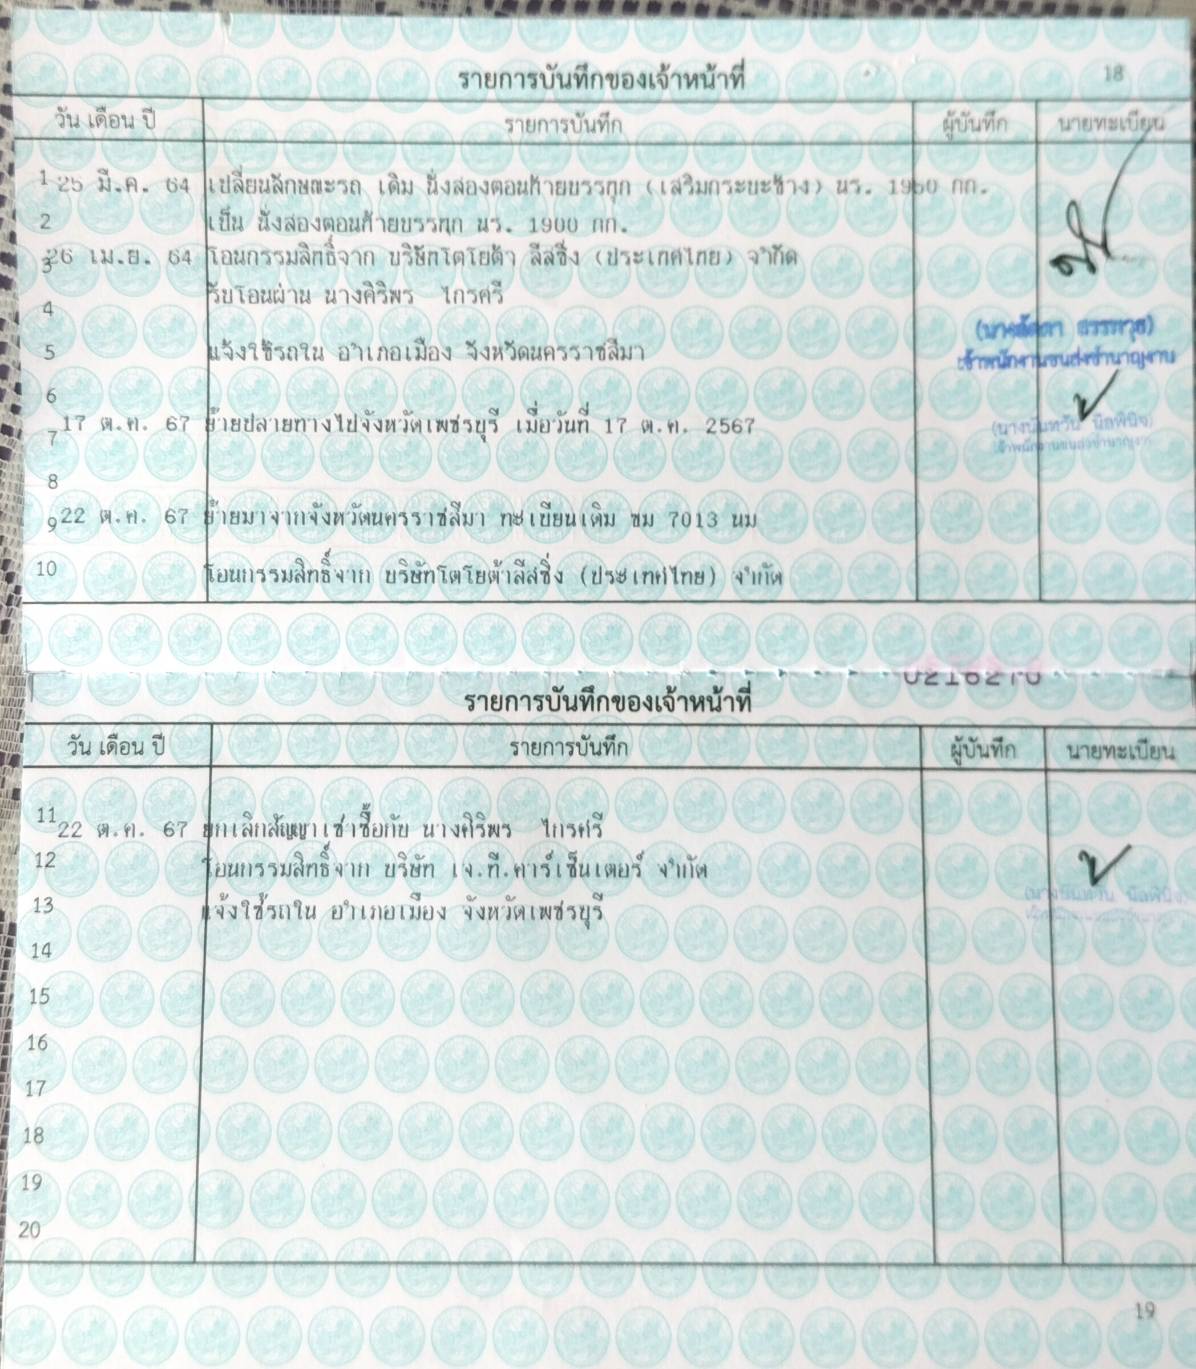 รายการบันทึกของเจ้าหน้าที่ 18
วัน เดือน ปี รายการบันทึก ผู้บันทึก นายทะเบียน
1 25 มี.ค. 64 เปลี่ยนลักษณะรถ เดิม นั่งสองตอนท้ายบรรทุก (เสริมกระบะข้าง) นร. 1950 กก.
2 เป็น นั่งสองตอนท้ายบรรทุก นร. 1900 กก.
3 26 เม.ย. 64 โอนกรรมสิทธิ์จาก บริษัทโตโยต้า ลีสซิ่ง (ประเทศไทย) จำกัด
รับโอนผ่าน นางศิริพร ไกรศรี
4
5 แจ้งใช้รถใน อำเภอเมือง จังหวัดนครราชสีมา
เจ้าพนักงานขนส่งชำนาญงาน
6
7 17 ต.ค. 67 ย้ายปลายทางไปจังหวัดเพชรบุรี เมื่อวันที่ 17 ต.ค. 2567
(นางนันทวัน นิลพินิจ)
เจ้าพนักงานขนส่งชำนาญงาน
8
9 22 ต.ค. 67 ย้ายมาจากจังหวัดนครราชสีมา ทะเบียนเดิม ขม 7013 นม
10 โอนกรรมสิทธิ์จาก บริษัทโตโยต้าลีสซิ่ง (ประเทศไทย) จำกัด
รายการบันทึกของเจ้าหน้าที่
วัน เดือน ปี รายการบันทึก ผู้บันทึก นายทะเบียน
11 22 ต.ค. 67 ยกเลิกสัญญาเช่าซื้อกับ นางศิริพร ไกรศรี
12 โอนกรรมสิทธิ์จาก บริษัท เจ.ที.คาร์เซ็นเตอร์ จำกัด
(นางนันทวัน นิลพินิจ)
13 แจ้งใช้รถใน อำเภอเมือง จังหวัดเพชรบุรี
14
15
16
17
18
19
20
19